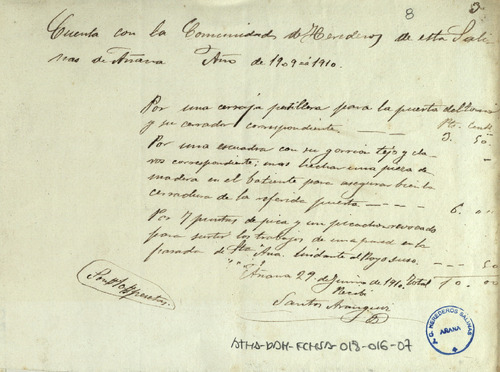 8
Cuenta con la Comunidad de Herederos de esta Sali
nas de Añana Año de 1909 á 1910.
Por una cerraja pestillera para la puerta del
Pts. Cents
y su cerrador correspondiente - - - 3. 50
Por una escuadra con su gorrion tejo y cla
vos correspondiente; mas hechar una pieza de
madera en el batiente para asegurar bien la
cerradura de la referida puerta - - - 6. 00
Por 7 puntas de pica y un picachon
para surtir los trabajos de una pared en la
parada de Sta Ana. lindante el Royo suso - - 50
Añana 29 de Junio de 1910. Total 10. 00
Recibí
Santos Aranguiz
Son 10 pesetas
ATHA-DAH-FCHSA-018-016-07
C. HEREDEROS SALINAS
AÑANA